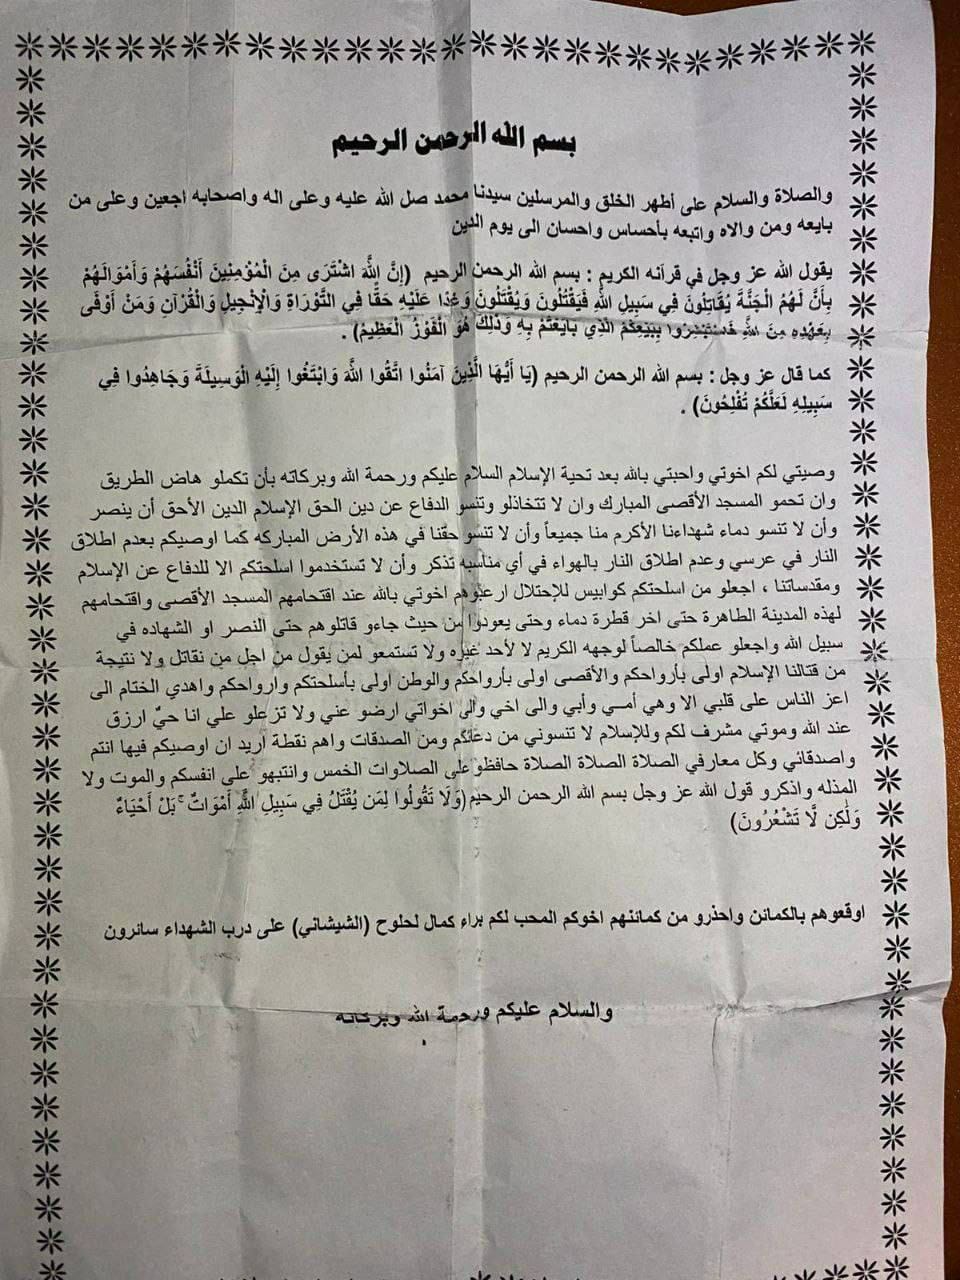 بسم الله الرحمن الرحيم
والصلاة والسلام على أطهر الخلق والمرسلين سيدنا محمد صل الله عليه وعلى اله واصحابه اجعين وعلى من
بايعه ومن والاه واتبعه بأحساس واحسان الى يوم الدين
يقول الله عز وجل في قرآنه الكريم : بسم الله الرحمن الرحيم (إِنَّ اللَّهَ اشْتَرَى مِنَ الْمُؤْمِنِينَ أَنْفُسَهُمْ وَأَمْوَالَهُمْ
بِأَنَّ لَهُمُ الْجَنَّةَ يُقَاتِلُونَ فِي سَبِيلِ اللَّهِ فَيَقْتُلُونَ وَيُقْتَلُونَ وَعْدًا عَلَيْهِ حَقًّا فِي التَّوْرَاةِ وَالْإِنْجِيلِ وَالْقُرْآنِ وَمَنْ أَوْفَى
بِعَهْدِهِ مِنَ اللَّهِ فَاسْتَبْشِرُوا بِبَيْعِكُمُ الَّذِي بَايَعْتُمْ بِهِ وَذَلِكَ هُوَ الْفَوْزُ الْعَظِيمُ) .
كما قال عز وجل : بسم الله الرحمن الرحيم (يَا أَيُّهَا الَّذِينَ آمَنُوا اتَّقُوا اللَّهَ وَابْتَغُوا إِلَيْهِ الْوَسِيلَةَ وَجَاهِدُوا فِي
سَبِيلِهِ لَعَلَّكُمْ تُفْلِحُونَ) .
وصيتي لكم اخوتي واحبتي بالله بعد تحية الإسلام السلام عليكم ورحمة الله وبركاته بأن تكملو هاض الطريق
وان تحمو المسجد الأقصى المبارك وان لا تتخاذلو وتنسو الدفاع عن دين الحق الإسلام الدين الأحق أن ينصر
وأن لا تنسو دماء شهداءنا الأكرم منا جميعاً وأن لا تنسو حقنا في هذه الأرض المباركه كما اوصيكم بعدم اطلاق
النار في عرسي وعدم اطلاق النار بالهواء في أي مناسبه تذكر وأن لا تستخدموا اسلحتكم الا للدفاع عن الإسلام
ومقدساتنا ، اجعلو من اسلحتكم كوابيس للإحتلال ارعبوهم اخوتي بالله عند اقتحامهم المسجد الأقصى واقتحامهم
لهذه المدينة الطاهرة حتى اخر قطرة دماء وحتى يعودوا من حيث جاءو قاتلوهم حتى النصر او الشهاده في
سبيل الله واجعلو عملكم خالصاً لوجهه الكريم لا لأحد غيره ولا تستمعو لمن يقول من اجل من نقاتل ولا نتيجة
من قتالنا الإسلام اولى بأرواحكم والأقصى اولى بأرواحكم والوطن اولى بأسلحتكم وارواحكم واهدي الختام الى
اعز الناس على قلبي الا وهي أمي وأبي والى اخي والى اخواتي ارضو عني ولا تزعلو علي انا حيٌ ارزق
عند الله وموتي مشرف لكم وللإسلام لا تنسوني من دعائكم ومن الصدقات واهم نقطة اريد ان اوصيكم فيها انتم
واصدقائي وكل معارفي الصلاة الصلاة الصلاة حافظو على الصلاوات الخمس وانتبهو على انفسكم والموت ولا
المذله واذكرو قول الله عز وجل بسم الله الرحمن الرحيم(وَلَا تَقُولُوا لِمَن يُقْتَلُ فِي سَبِيلِ اللَّهِ أَمْوَاتٌ ۚ بَلْ أَحْيَاءٌ
وَلَٰكِن لَّا تَشْعُرُونَ)
اوقعوهم بالكمائن واحذرو من كمائنهم اخوكم المحب لكم براء كمال لحلوح (الشيشاني) على درب الشهداء سائرون
والسلام عليكم ورحمة الله وبركاته